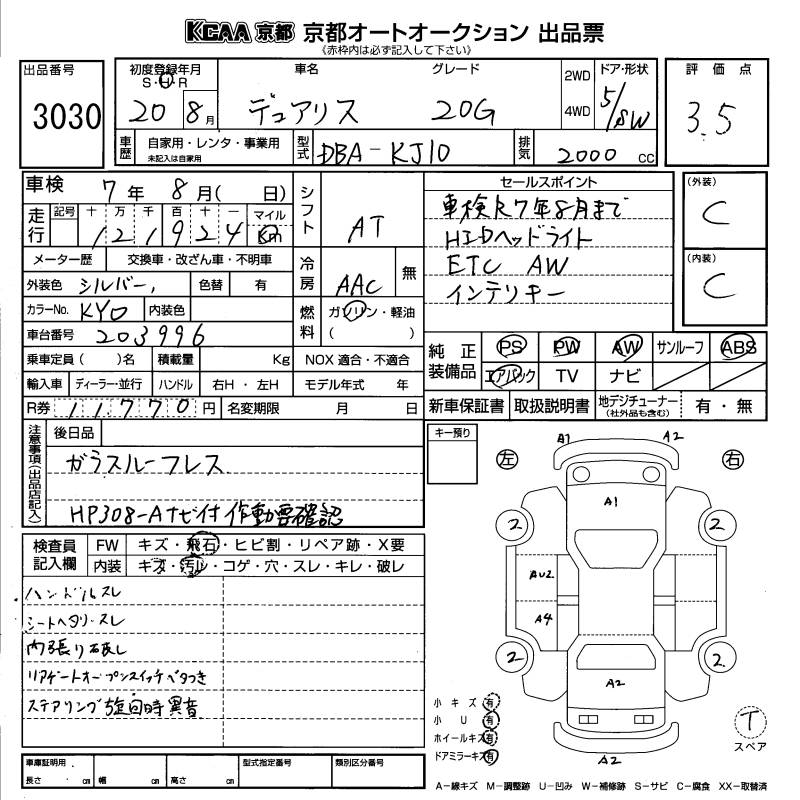 KCAA 京都 京都オートオークション 出品票
《赤枠内は必ず記入して下さい》
出品番号
3030
初度登録年月
S・H・R
20 8月
車名
デュアリス
グレード
20G
2WD
4WD
ドア・形状
5/SW
評価点
3.5
車歴
自家用・レンタ・事業用
未記入は自家用
型式
DBA-KJ10
排気
2000 cc
車検 7年 8月( 日)
走行
記号 十 万 千 百 十 一 マイル
121924 Km
シフト
AT
メーター歴 交換車・改ざん車・不明車
外装色 シルバー, 色替 有
冷房
AAC 無
カラーNo. KY0 内装色
燃料
ガソリン・軽油
( )
車台番号 203996
乗車定員( )名 積載量 Kg NOX 適合・不適合
輸入車 ディーラー・並行 ハンドル 右H・左H モデル年式 年
R券 11,770 円 名変期限 月 日
セールスポイント
車検R7年8月まで
HIDヘッドライト
ETC AW
インテリキー
(外装)
C
(内装)
C
純正装備品
PS PW AW サンルーフ ABS
エアバック TV ナビ
新車保証書 取扱説明書 地デジチューナー(社外品も含む) 有・無
注意事項(出品店記入)
後日品
ガラスルーフレス
HP308-Aナビ付 作動要確認
キー預り
検査員記入欄
FW キズ・飛石・ヒビ割・リペア跡・X要
内装 キズ・汚レ・コゲ・穴・スレ・キレ・破レ
ハンドルスレ
シートヘタリ・スレ
内張り
リアゲートオープンスイッチベタつき
ステアリング旋回時異音
左 右
A1 A2
A1
2 2
AU2
A4
2 2.
A2
A2
小キズ 有
小U 有
ホイールキズ 有
ドアミラーキズ 有
T
スペア
車庫証明用
長さ cm 幅 cm 高さ cm
型式指定番号
類別区分番号
A-線キズ M-調整跡 U-凹み W-補修跡 S-サビ C-腐食 XX-取替済